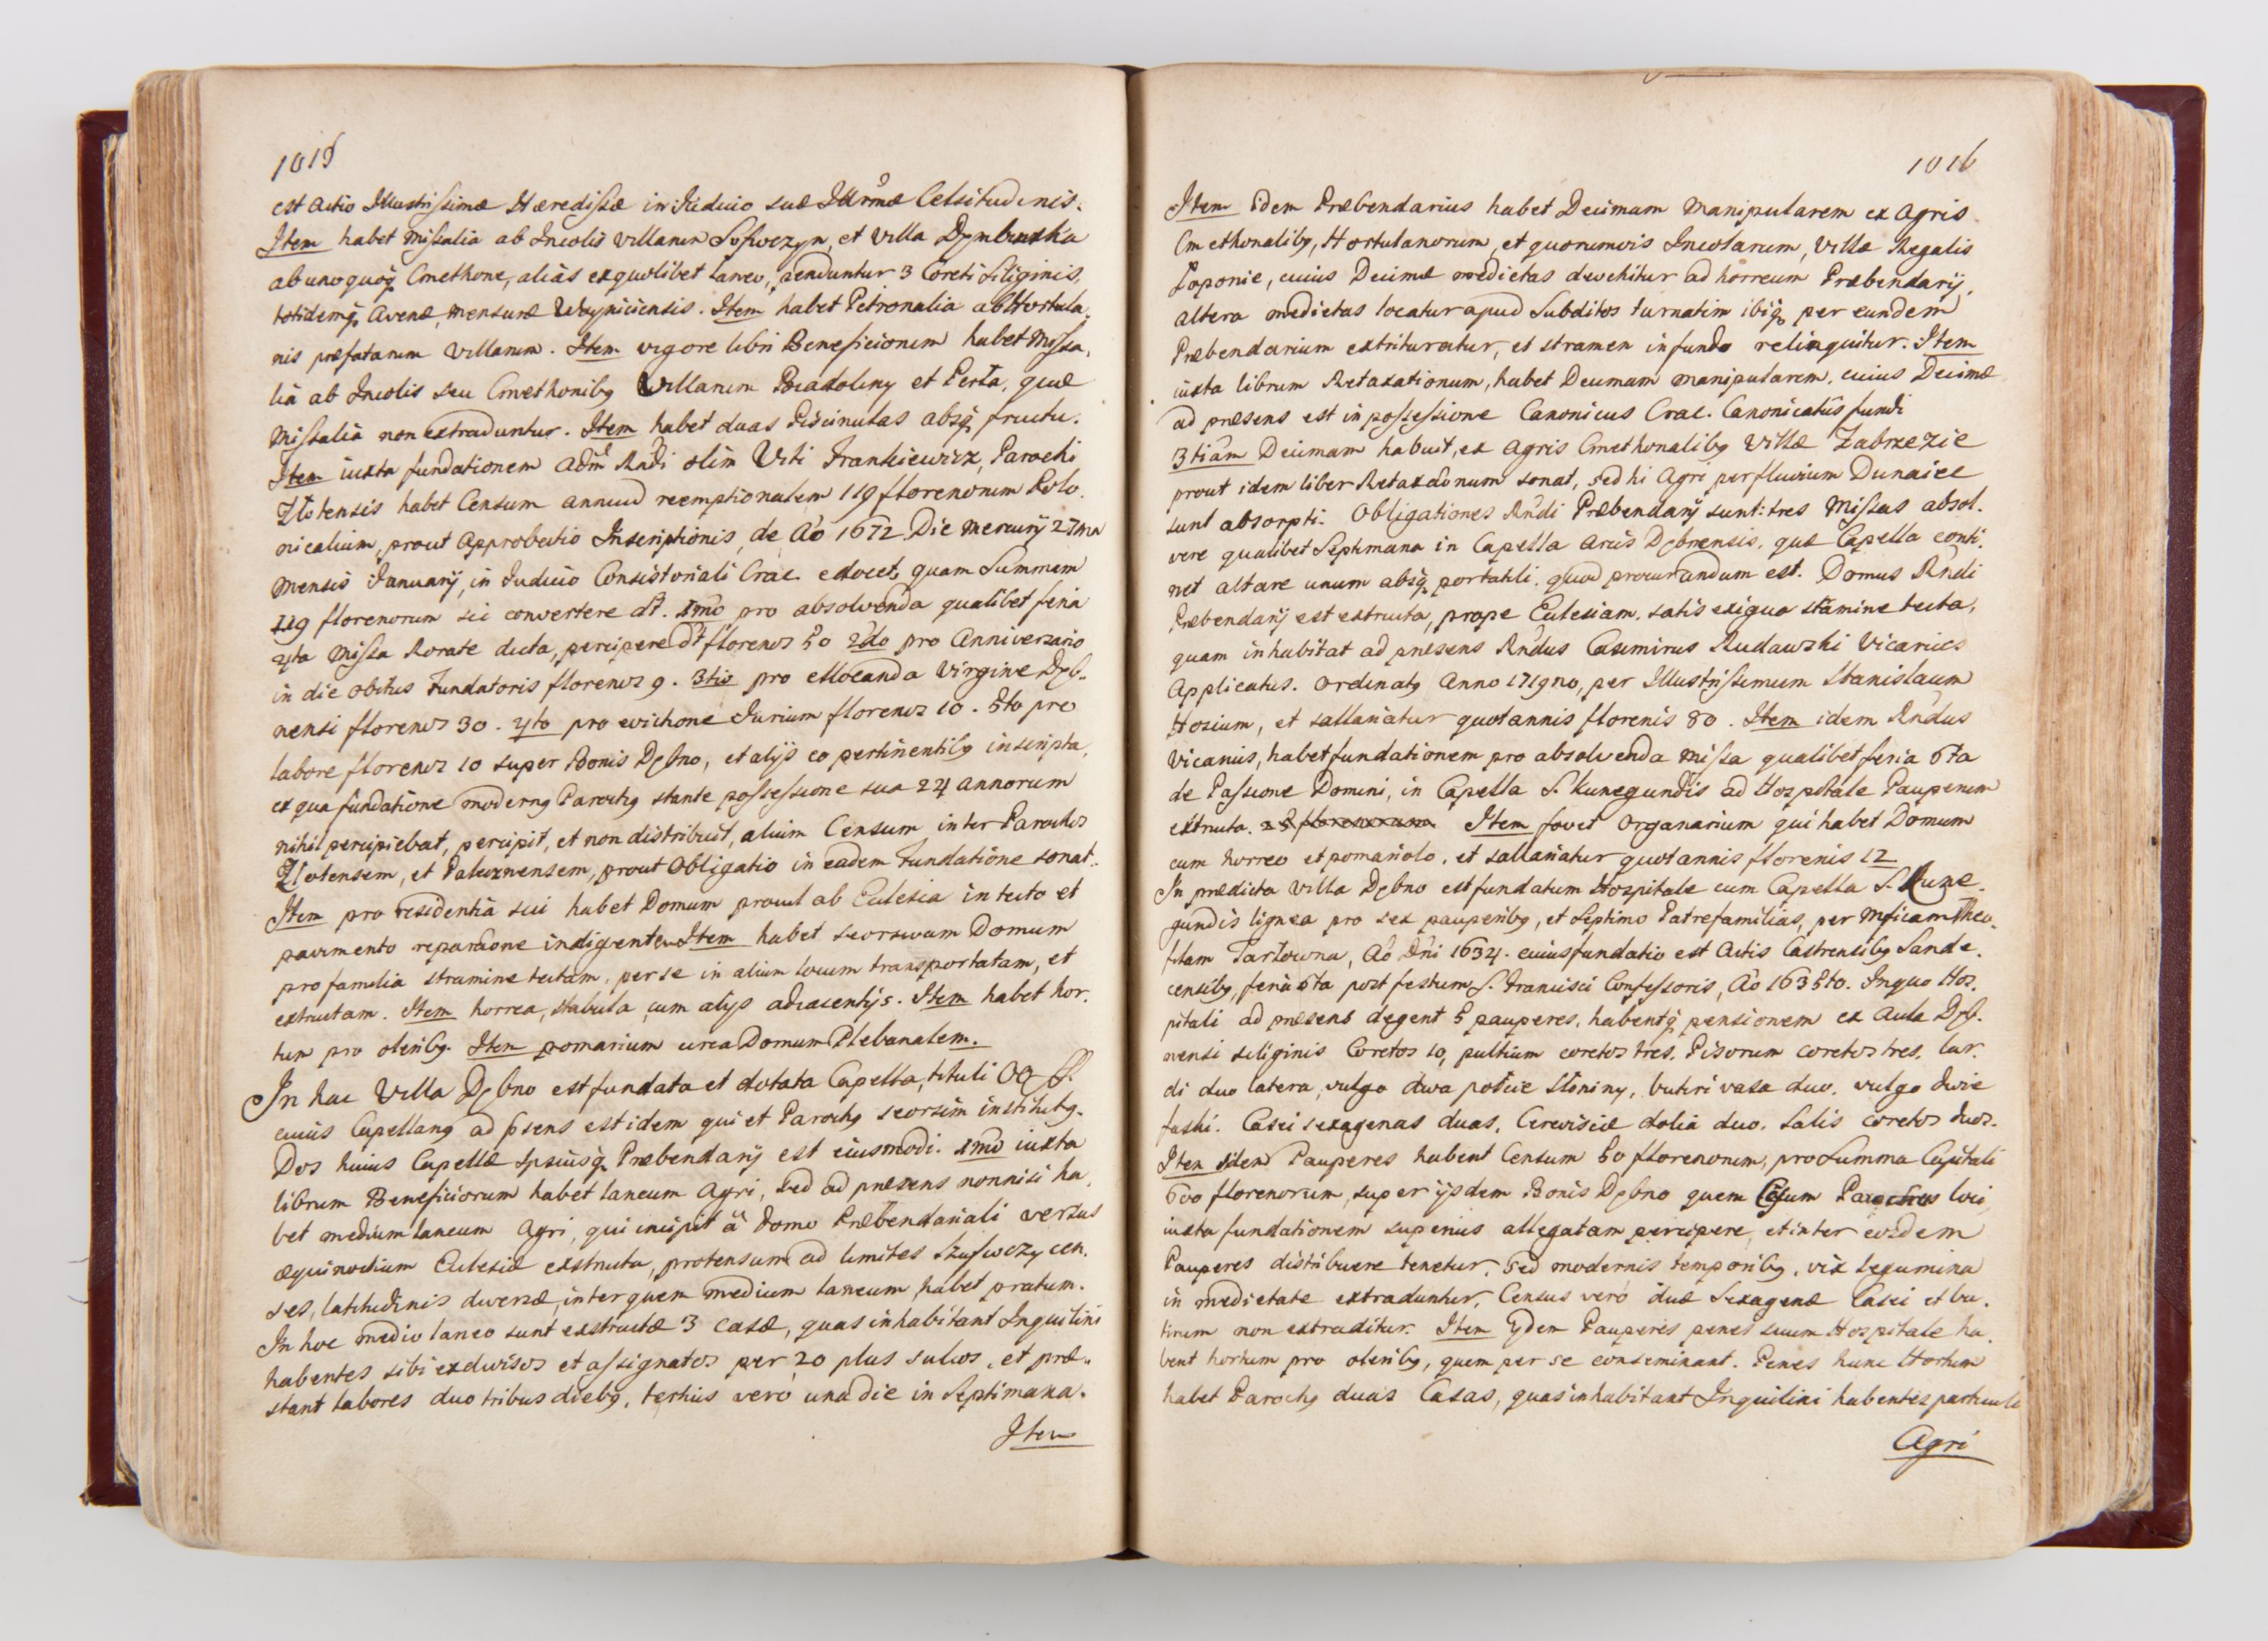 1015
est actio Illustrissimæ Hæredissæ in Iudicio suæ Illrmæ Celsitudinis.
Item habet missalia ab Incolis villarum Sufwczyn, et villa Dymbinska
ab unoquoq Cmethone, aliàs ex quolibet Laneo, renduntur 3 Coreti siliginis,
totidemq avenæ, mensuræ Woyniciensis. Item habet Petronalia ab Hortula,
nis præfatarum villarum. Item vigore libri Beneficiorum habet Missa,
lia ab Incolis seu Cmethonibg Villarum Biadoliny et Perła, quæ
Missalia non extraduntur. Item habet duas Piscinulas absq fructu.
Item iuxta fundationem adm Rndi olim Viti Frankiewicz, Parochi
Złotensis habet Censum annuũ reemptionalem 119 florenorum Polo,
nicalium, prout Approbatio Inscriptionis, de Aõ 1672 Die Mercurij 27ma
Mensis Ianuarij, in Iudicio Consistoriali Crac. edocet, quam summam
119 florenorum sic convertere dt. 1mo pro absolvenda qualibet feria
4ta Missa Rorate dicta, percipere dt florenos 50 2do pro Anniversario
in die obitus Fundatoris florenos 9. 3tio pro ellocanda Virgine Dęb.
nensi florenos 30. 4to pro evictione Iurium florenos 10. 5to pro
labore florenos 10 super Bonis Dębno, et alijs eo pertinentibg inscripta,
ex qua fundatione moderng Parochg stante possessione sua 24 annorum
nihil percipiebat, percipit, et non distribuit, alium Censum inter Parochos
Złotensem, et Paleznensem, prout Obligatio in eadem Fundatione sonat.
Item pro residentia sui habet Domum procul ab Eclesia in tecto et
pavimento reparaõne indigentem Item habet seorsivam Domum
pro familia stramine tectam, per se in alium locum transportatam, et
extructam. Item horrea, stabula, cum alijs adiacentijs. Item habet hor.
tum pro oleribg. Item pomarium circa Domum Plebanalem.
In hac Villa Dębno est fundata et dotata Capella, tituli OO SS.
cuius Capellang ad psens est idem qui et Parochg seorsim institutg.
Dos huius Capellæ ipsiusq Præbendarij est eiusmodi. 1mo iuxta
librum Beneficiorum habet laneum Agri, sed ad præsens nonnisi ha,
bet medium laneum Agri, qui incipit à domo Præbendariali versus
æquinoctium Eclesiæ exstructa, protensum ad limites Szufwczy cen.
ses, latitudinis diversæ, inter quem medium laneum habet pratum.
In hoc medio laneo sunt exstructæ 3 casæ, quas inhabitant Inquilini
habentes sibi exdivisos et assignatos per 20 plus sulcos, et præ,,
stant labores duo tribus diebg, tertius verò una die in Septimana.
Item
1016
Item idem Præbendarius habet Decimam manipularem ex agris
Cmethonalibg, Hortulanorum, et quorumvis Incolarum, Villæ Regalis
Łoponie, cuius Decimæ medietas devehitur ad horreum Præbendarij,
altera medietas locatur apud subditos turnatim ibiq per eundem
Præbendarium extrituratur, et stramen in fundo relinquitur. Item
iuxta librum Retaxationum, habet Decimam manipularem, cuius Decimæ
ad præsens est in possessione Canonicus Crac. Canonicatûs fundi
3tiam Decimam habuit, ex agris Cmethonalibg Villæ Zabrzezie
prout idem liber Retaxaõnum sonat, sed hi Agri per fluvium Dunaiec
sunt absorpti. Obligationes Rndi Præbendarij sunt: tres Missas absol.
vere qualibet Septimana in Capella arcis Dębnensis, quæ Capella conti,
net altare unum absq portatili, quod procurandum est. Domus Rndi
Præbendarij est extructa, prope Eclesiam, satis exigua stamine tecta,
quam inhabitat ad præsens Rndus Casimirus Rudawski Vicarius
Applicatus. Ordinatg Anno 1719no, per Illustrissimum Stanislaum
Hosium, et sallariatur quotannis florenis 80. Item idem Rndus
Vicarius, habet fundationem pro absolvenda Missa qualibet feria 6ta
de Passione Domini, in Capella S. Kunegundis ad Hospitale Pauperum
extructa. 25 florenorum Item fovet Organarium qui habet Domum
cum horreo et pomariolo, et sallariatur quotannis florenis 12
In prædicta villa Dębno est fundatum Hospitale cum Capella S. Kune.
gundis lignea pro sex pauperibg, et septimo Patrefamilias, per Mficam Theo,
filam Tarłowna, Aõ Dni 1634. cuius fundatio est Actis Castrensibg Sande.
censibg, feria 6ta post festum S. Francisci Confessoris, Aõ 1635to. In quo Hos.
pitali ad præsens degent 5 pauperes, habentq pensionem ex Aula Dęb.
nensi siliginis Coretos 10, pultium coretos tres, Pisorum coretos tres, lar.
di duo latera, vulgo dwa połcie słoniny, butiri vasa duo, vulgo dwie
faski. Casei sexagenas duas, Cerevisiæ dolia duo, Salis coretos duos.
Item iidem Pauperes habent Censum 50 florenorum, pro Summa Capitali
600 florenorum, super ijsdem Bonis Dębno quem Cęsum Parochus loci
iuxta fundationem superius allegatam percipere, et inter eosdem
Pauperes distribuere tenetur, sed modernis temporibg, vix legumina
in medietate extraduntur, Census verò duæ Sexagenæ Casei et bu.
tirum non extraditur. Item ijdem Pauperes penes suum Hospitale ha.
bent hortum pro oleribg, quem per se conseminant. Penes hunc Hortum
habet Parochg duas Casas, quas inhabitant Inquilini habentes particuli
Agri